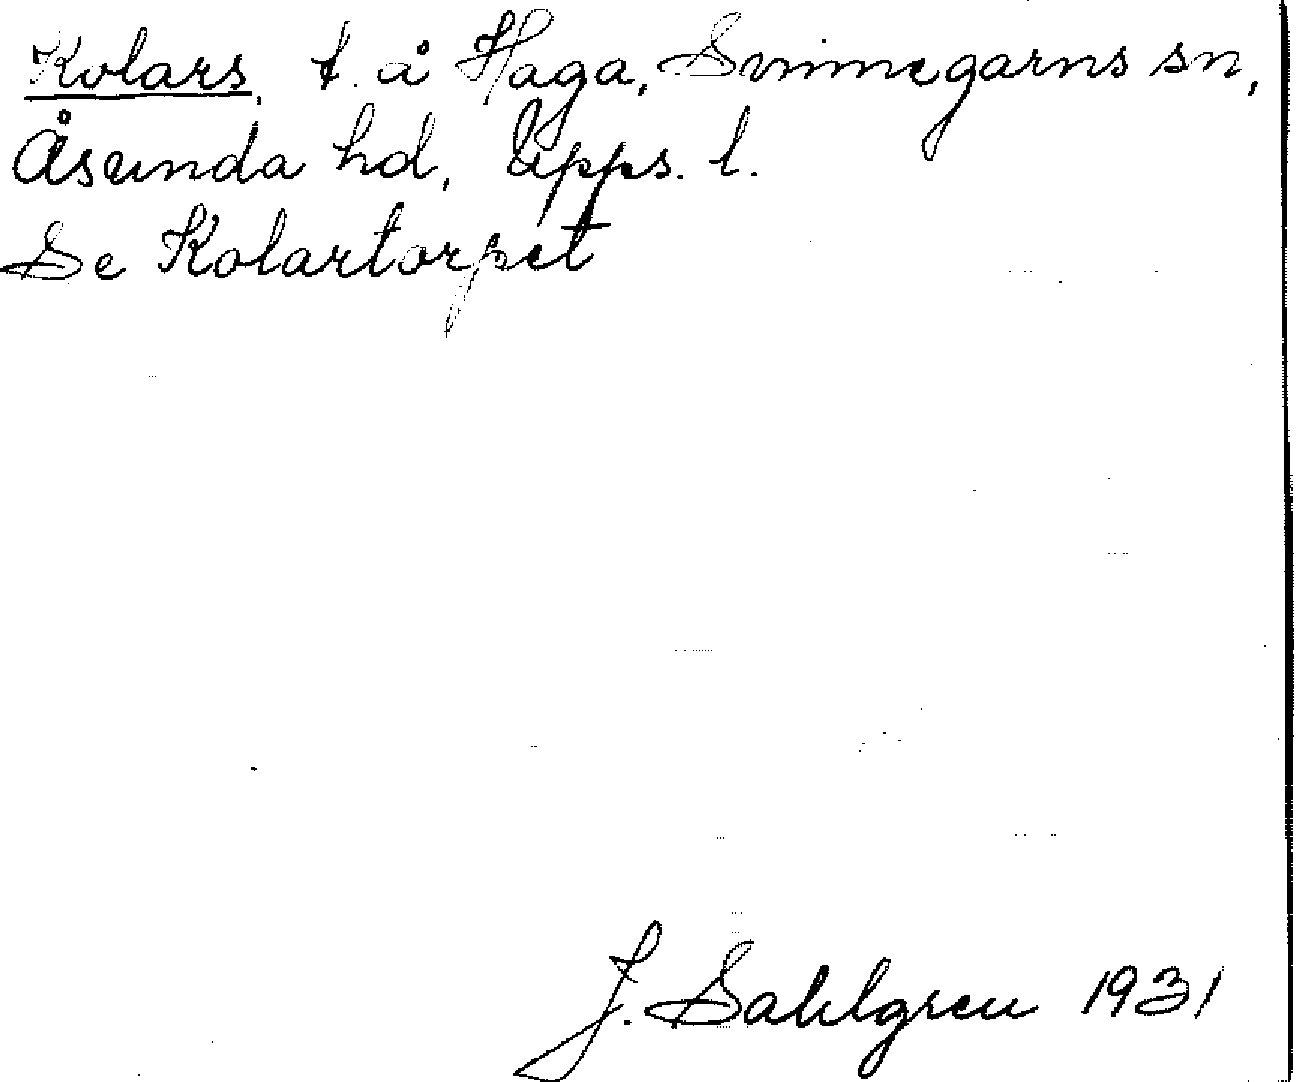 Kolars, t. å Haga, Svinnegarns sn,
Åsunda hd, Upps. l.
Se Kolartorpet
J. Sahlgren 1931